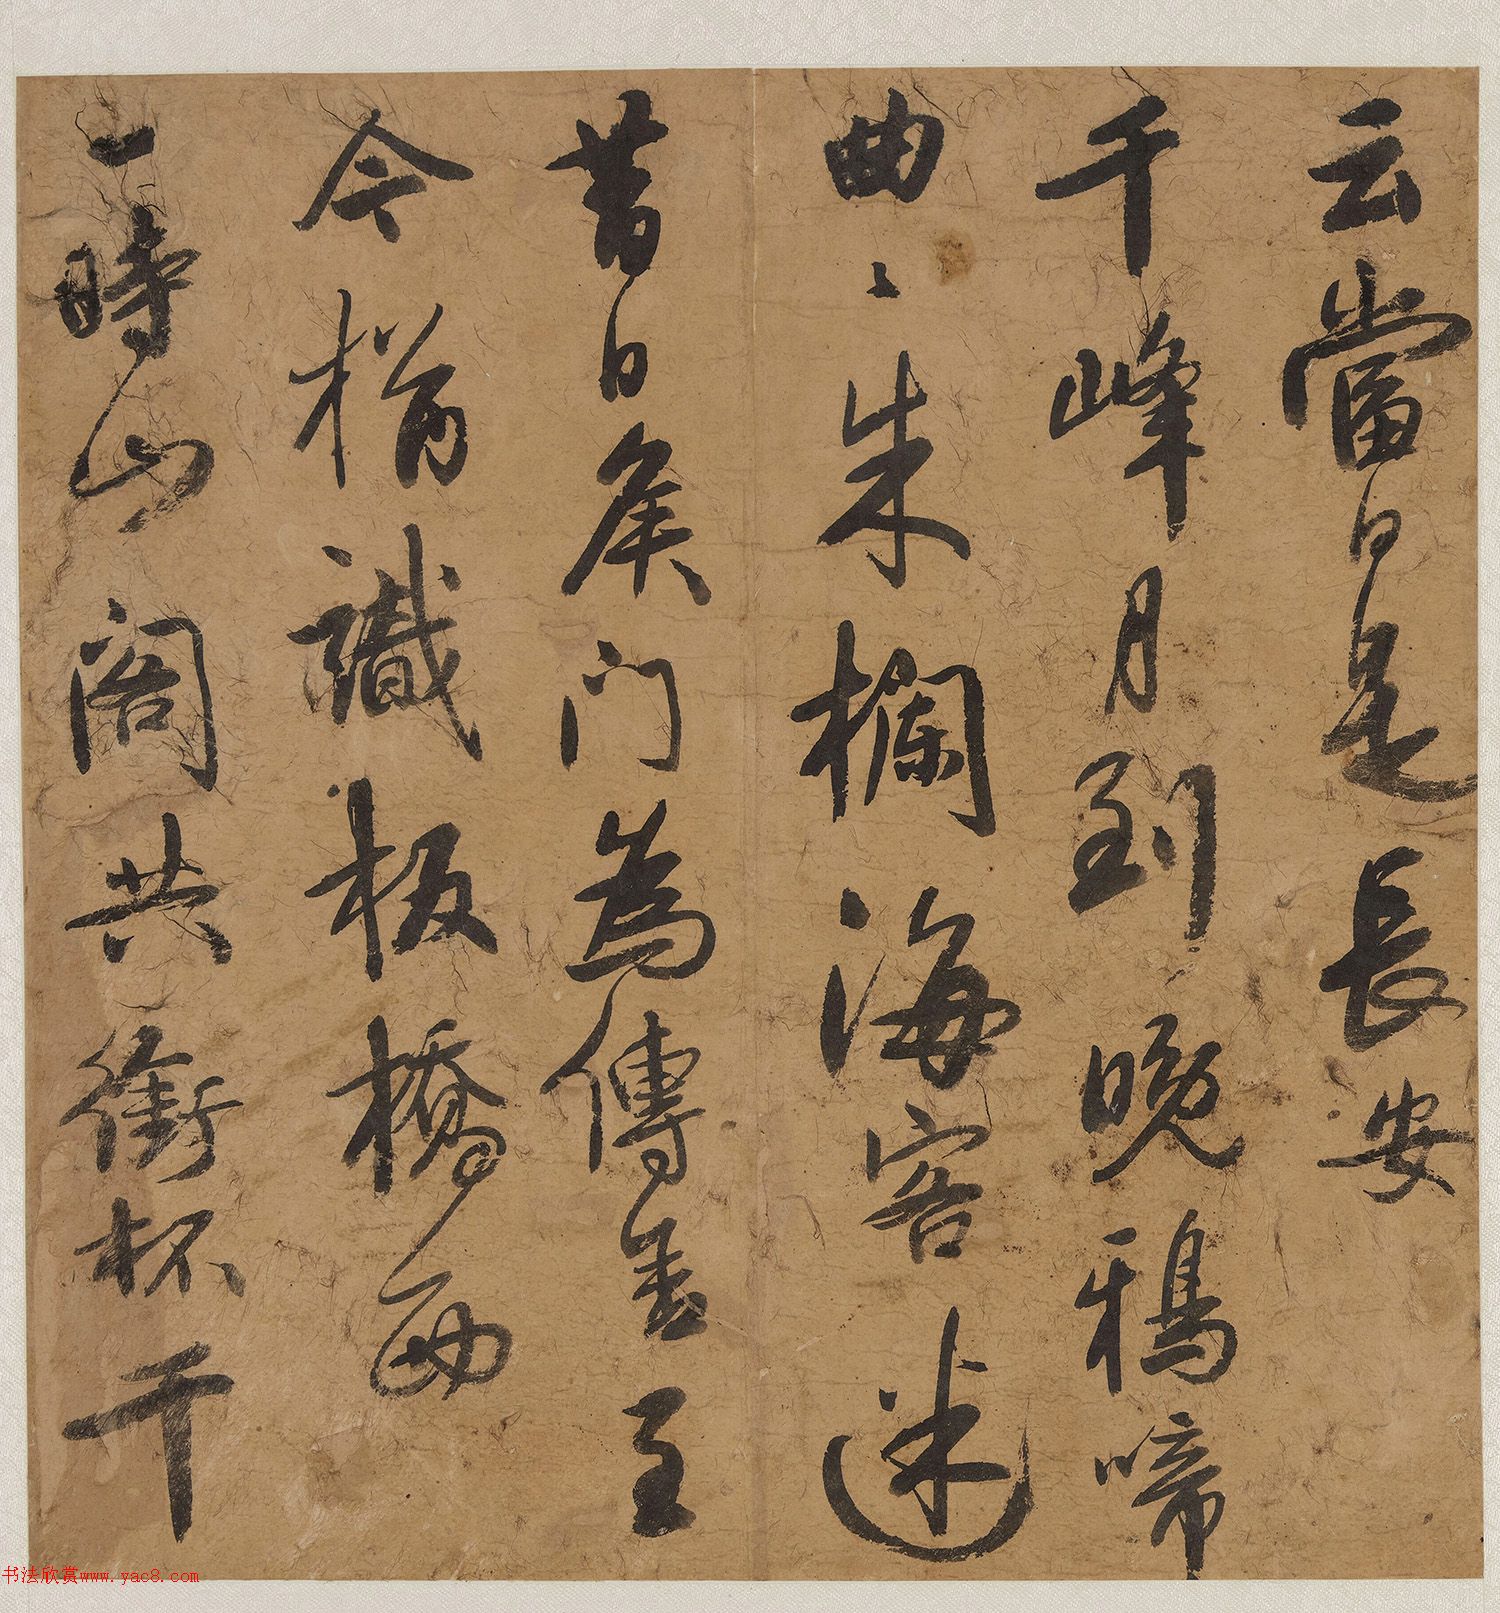 云當日是長安
千峰月到晚鴉啼
曲〻朱欄海客迷
昔日侯門為傳舍至
今指識板橋西
一時山閣共銜杯千
书法欣赏www.yac8.com